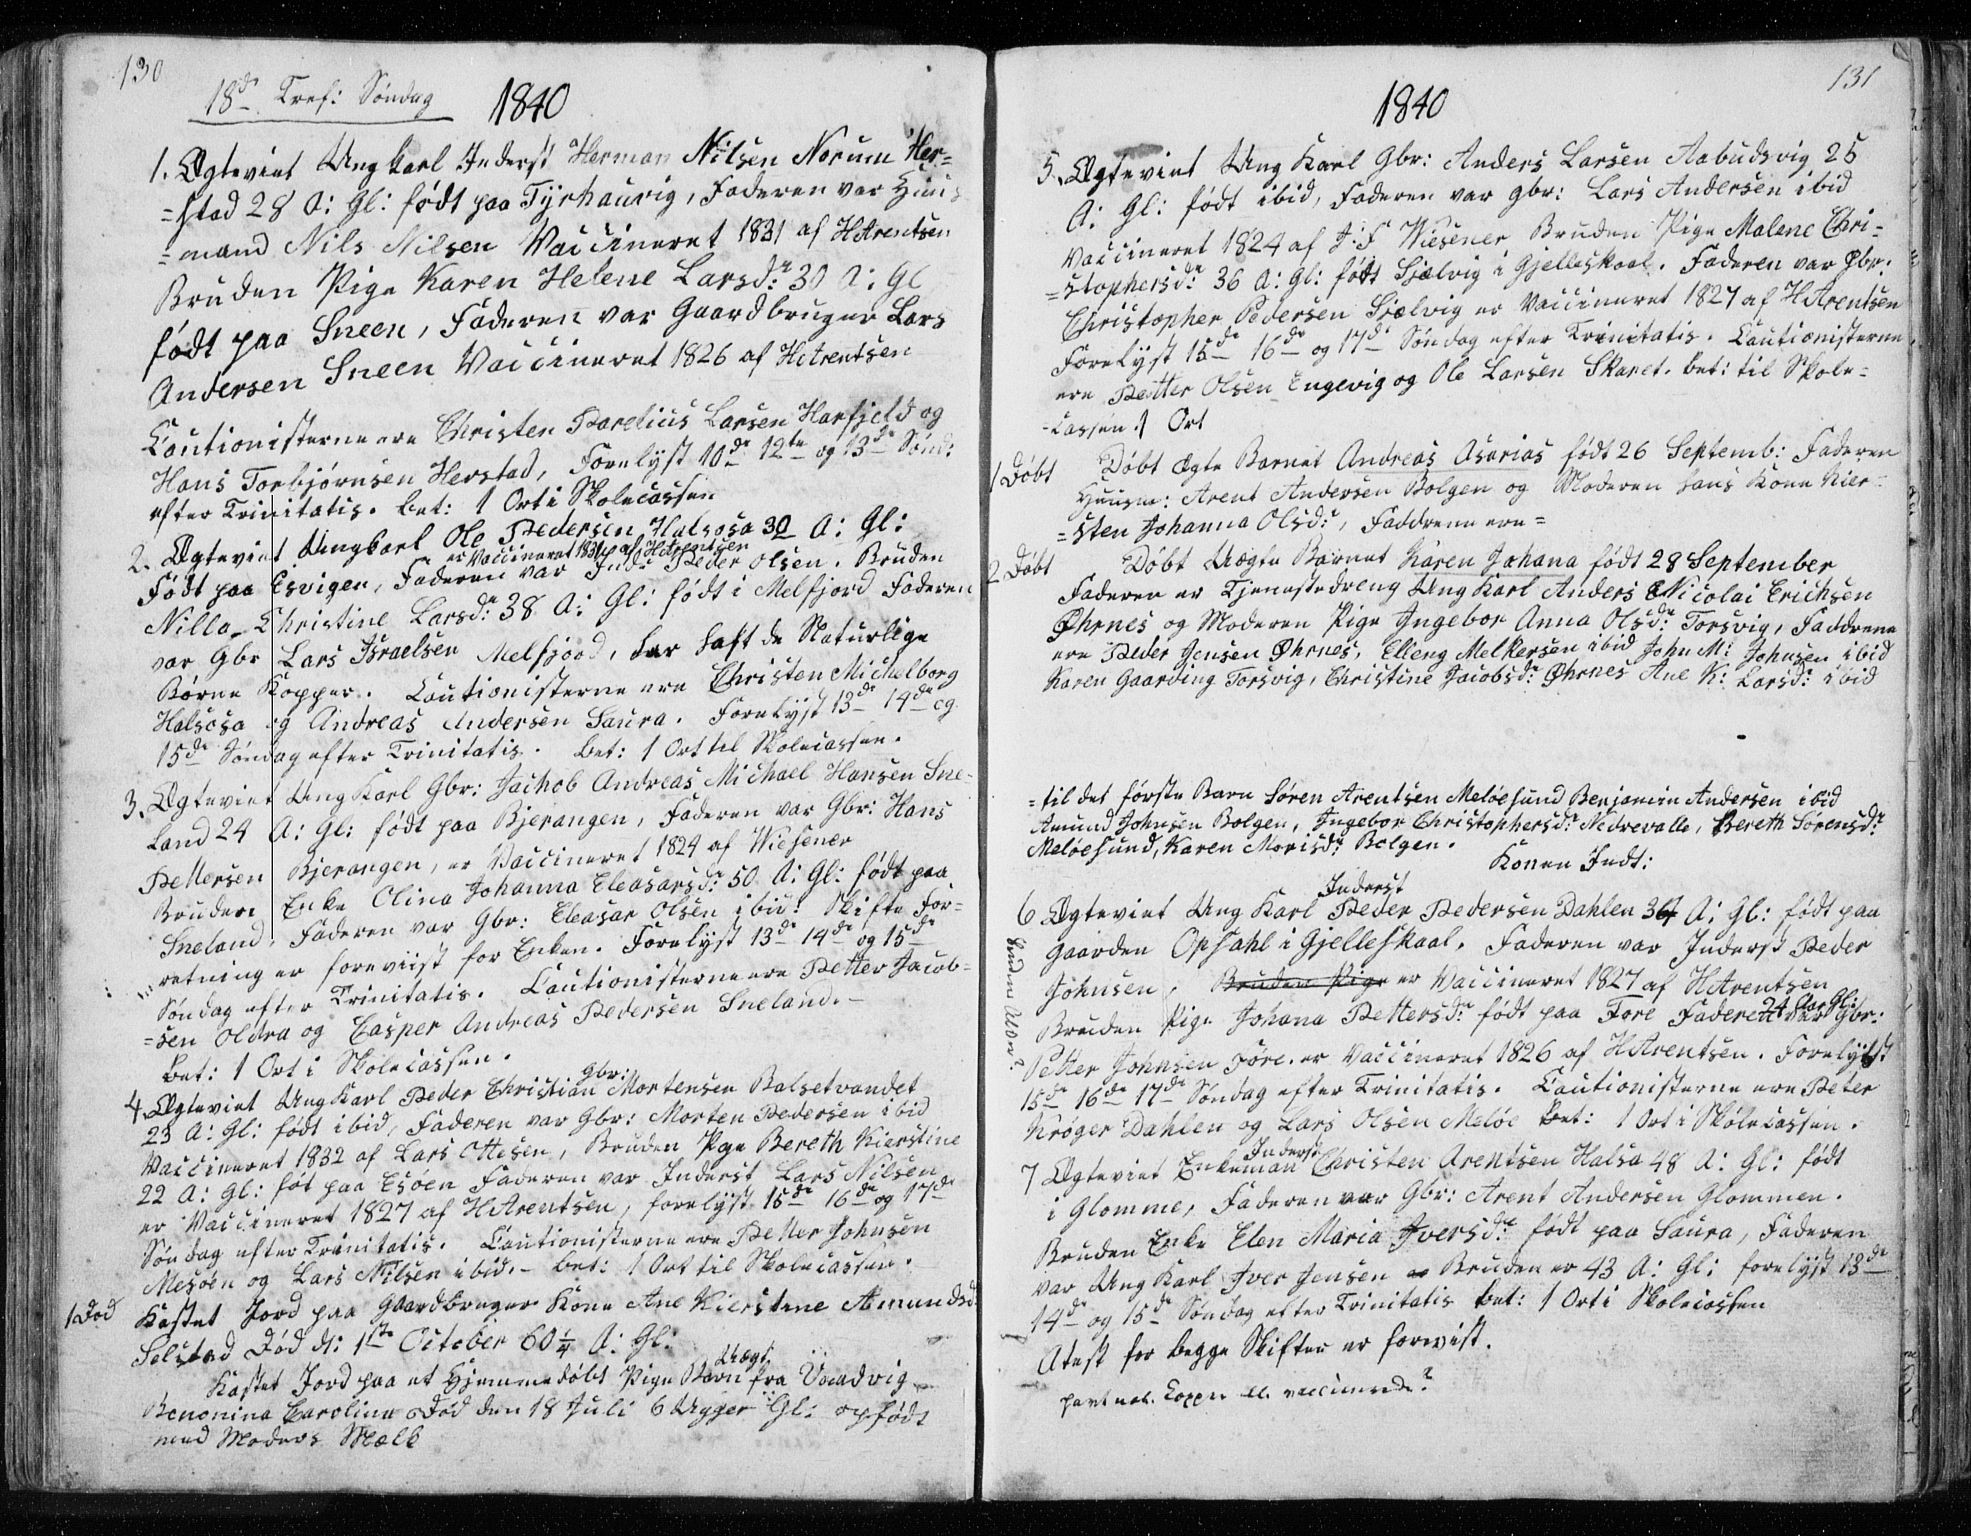 130
18de Tref: Søndag 1840
1. Ægteviet Ungkarl Inderst Herman Nilsen Norum Her=
=stad 28 A: Gl: født paa Tyrhaurig, Faderen var Huus
=mand Nils Nilsen Vaccineret 1831 af HArentsen
Bruden Pige Karen Helene Larsdr: 30 A: Gl
født paa Sneen, Faderen var Gaardbruger Lars
Andersen Sneen Vaccineret 1826 af HArentsen
Cautionisterne ere Christen Parelius Larsen Harfjeld og
Hans Torbjørnsen Herstad, Forelyst 10de 12te og 13de Sønd:
efter Trinitatis. bet: 1 Ort i Skolecassen
2. Ægteviet Ungkarl Ole Pedersen Halsosa 30 A: Gl:
er Vaccineret 1831 af HArentsen
Født paa Esvigen, Faderen var Inds: Peder Olsen. Bruden
Nilla Christine Larsdr: 38 A: Gl: født i Melfjord Faderen
var Gbr Lars Israelsen Melfjord, har haft de Naturlige
Børne Kopper. Cautionisterne ere Christen Michelborg
Halsosa og Andreas Andersen Saura. Forelyst 13de 14de og
15de Søndag efter Trinitatis. bet: 1 Ort til Skolecassen.
3. Ægteviet Ung Karl Gbr: Jachob Andreas Michael Hansen Sne-
land 24 A: Gl: født paa Bjerangen, Faderen var Gbr: Hans
Pettersen Bjerangen, er Vaccineret 1824 af Wiesener
Bruden Enke Olina Johanna Eleasarsdr: 50 A: Gl: født paa
Sneland, Faderen var Gbr: Eleasar Olsen ibid: Skifte For=
retning er foreviist for Enken. Forelyst 13de 14de og 15de
Søndag efter Trinitatis. Cautionisterne ere Petter Jacob=
=sen Oldra og Casper Andreas Pedersen Sneland.-
bet: 1 Ort i Skolecassen.
Gbr:
4. Ægteviet Ung Karl Peder Christian Mortensen Balsetvandet
23 A: Gl: født ibid, Faderen var Gbr: Morten Pedersen ibid
Vaccineret 1832 af Lars Ottesen, Bruden Pige Bereth Kierstine
22 A: Gl: føt paa Esøen Faderen var Inderst Lars Nilsen
er Vaccineret 1827 af HArentsen, forelyst 15de 16de og 17de
Søndag efter Trinitatis. Cautionisterne ere Petter Johnsen
Mesøen og Lars Nilsen ibid.- bet: 1 Ort til Skolecassen.
1 Død Kastet Jord paa Gaardbruger Kone Ane Kierstine Amundsd
Selstad Død d: 1ste October 60¼ A: Gl:
Uægt.
Kastet Jord paa et Hjemmedøbt Pige Barn fra Vaadvig
Benonina Carolina Død den 18 Juli 6 Ugger Gl: opfødt
med Moders Mælk
131
1840
5. Ægteviet Ung Karl Gbr: Anders Larsen Aabudsvig 25
A: Gl: født ibid, Faderen var gbr: Lars Andersen ibid
Vaccineret 1824 af J:F Wiesener Bruden Pige Malene Chri=
=stophersdr: 36 A: Gl: født Sjælvig i Gjelleskaal. Faderen var Gbr:
Christopher Pedersen Sjælvig er Vaccineret 1827 af HArentsen
Forelyst 15de 16de og 17de Søndag efter Trinitatis. Cautionisterne
ere Petter Olsen Engevig og Ole Larsen Skaret. bet: til Skole=
-cassen 1 Ort
1 Døbt Døbt Ægte Barnet Andreas Asarias født 26 Septemb: Faderen
Huusm: Arent Andersen Bolgen og Moderen hans Kone Kier=
=sten Johanna Olsdr:, Faddrene ere=
2 Døbt Døbt Uægte Barnet Karen Johana født 28 September
Faderen er Tjenestedreng Ung Karl Anders Nicolai Erichsen
Øhrnes og Moderen Pige Ingebor Anna Olsdr: Torsvig, Faddrene
ere Peder Jensen Øhrnes, Elleng Melkersen ibid John M: Johnsen ibid
Karen Gaarding Torsvig, Christine Jacobsdr: Øhrnes Ane K: Larsdr: ibid
=til det første Barn Søren Arentsen Meløesund Benjamin Andersen ibid
Amund Johnsen Bolgen, Ingebor Christophersdr: Nedrevalle, Bereth Sørensdr:
Meløesund, Karen Morisdr: Bolgen.
Konen Indt:
Inderst
6 Ægteviet Ung Karl Peder Pedersen Dahlen 36 A: Gl: født paa
Gaarden Opsahl i Gjelleskaal. Faderen var Inderst Peder
Johnsen. Bruden Pige er Vaccineret 1827 af HArentsen
24 Aar Gl:
Bruden Pige Johana Pettersdr: født paa Fore Faderen var Gbr:
Petter Johnsen Fore. er Vaccineret 1826 af HArentsen. Forelyst
15de 16de 17de Søndag efter Trinitatis. Cautionisterne ere Peter
Krøger Dahlen og Lars Olsen Meløe bet: 1 Ort i Skolecassen.
Inderst
7 Ægteviet Enkemand Christen Arentsen Halsa 48 A: Gl: født
i Glomme, Faderen var Gbr: Arent Andersen Glommen.
Bruden Enke Elen Maria Iversdr: født paa Saura, Faderen
var Ung Karl Iver Jensen Bruden er 43 A: Gl: forelyst 13de
14de og 15de Søndag efter Trinitatis bet: 1 Ort i Skolecassen
Atest for begge Skifter er forevist.
havt nat. Kopper el. vaccinerede?
Brudens Alder?